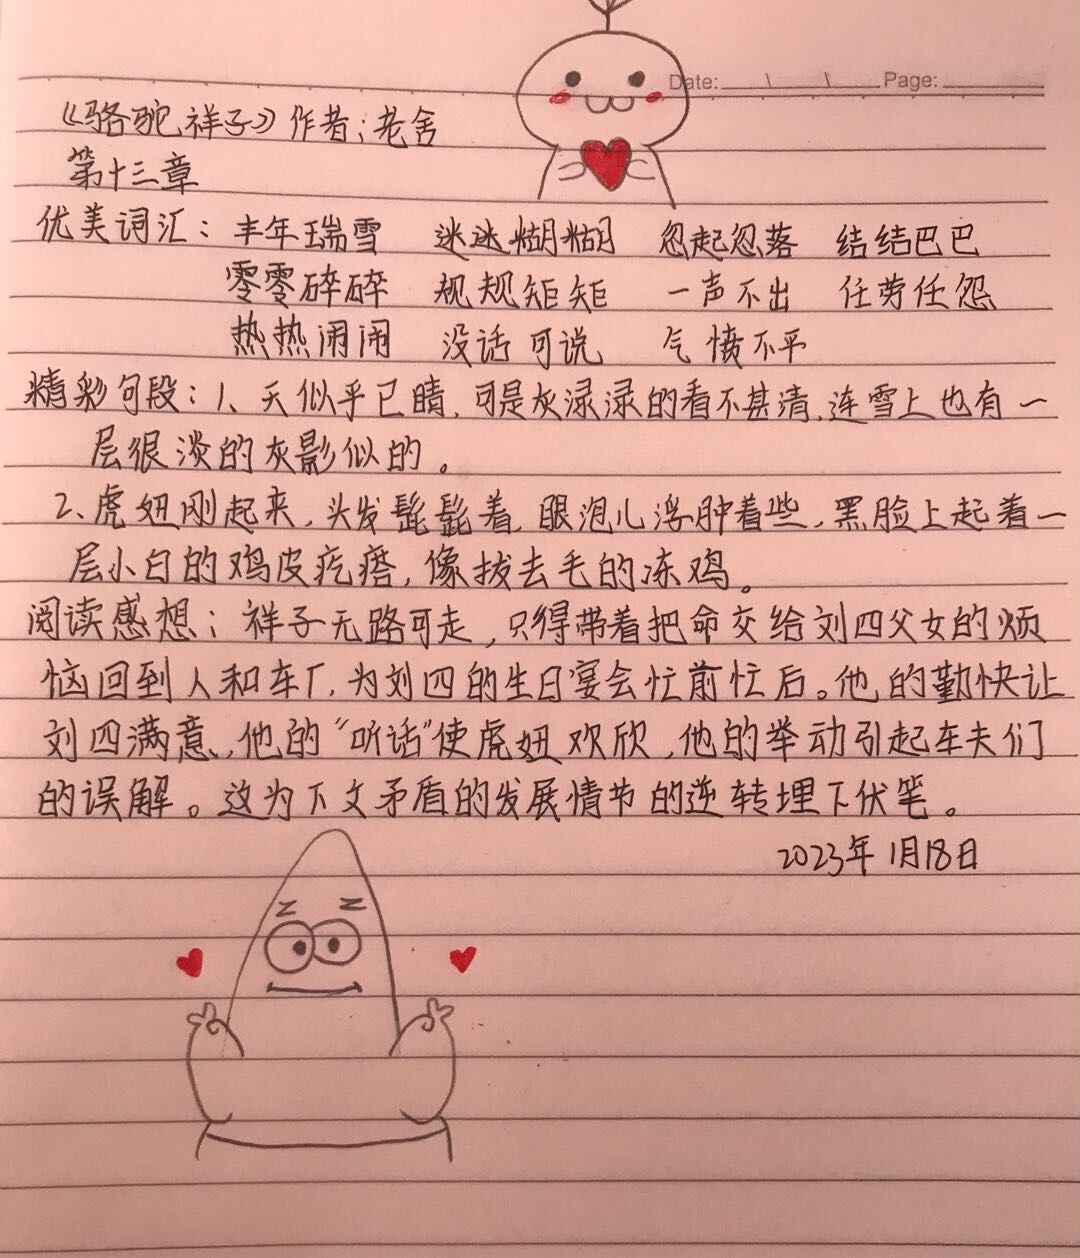 Date: \ \ Page:
《骆驼祥子》作者:老舍
第十三章
优美词汇: 丰年瑞雪 迷迷糊糊 忽起忽落 结结巴巴
零零碎碎 规规矩矩 一声不出 任劳任怨
热热闹闹 没话可说 气愤不平
精彩句段:1、天似乎已晴,可是灰渌渌的看不甚清,连雪上也有一
层很淡的灰影似的。
2、虎妞刚起来,头发髭髭着,眼泡儿浮肿着些,黑脸上起着一
层小白的鸡皮疙瘩,像拔去毛的冻鸡。
阅读感想:祥子无路可走,只得带着把命交给刘四父女的烦
恼回到人和车厂,为刘四的生日宴会忙前忙后。他的勤快让
刘四满意,他的“听话”使虎妞欢欣,他的举动引起车夫们
的误解。这为下文矛盾的发展情节的逆转埋下伏笔。
2023年1月18日